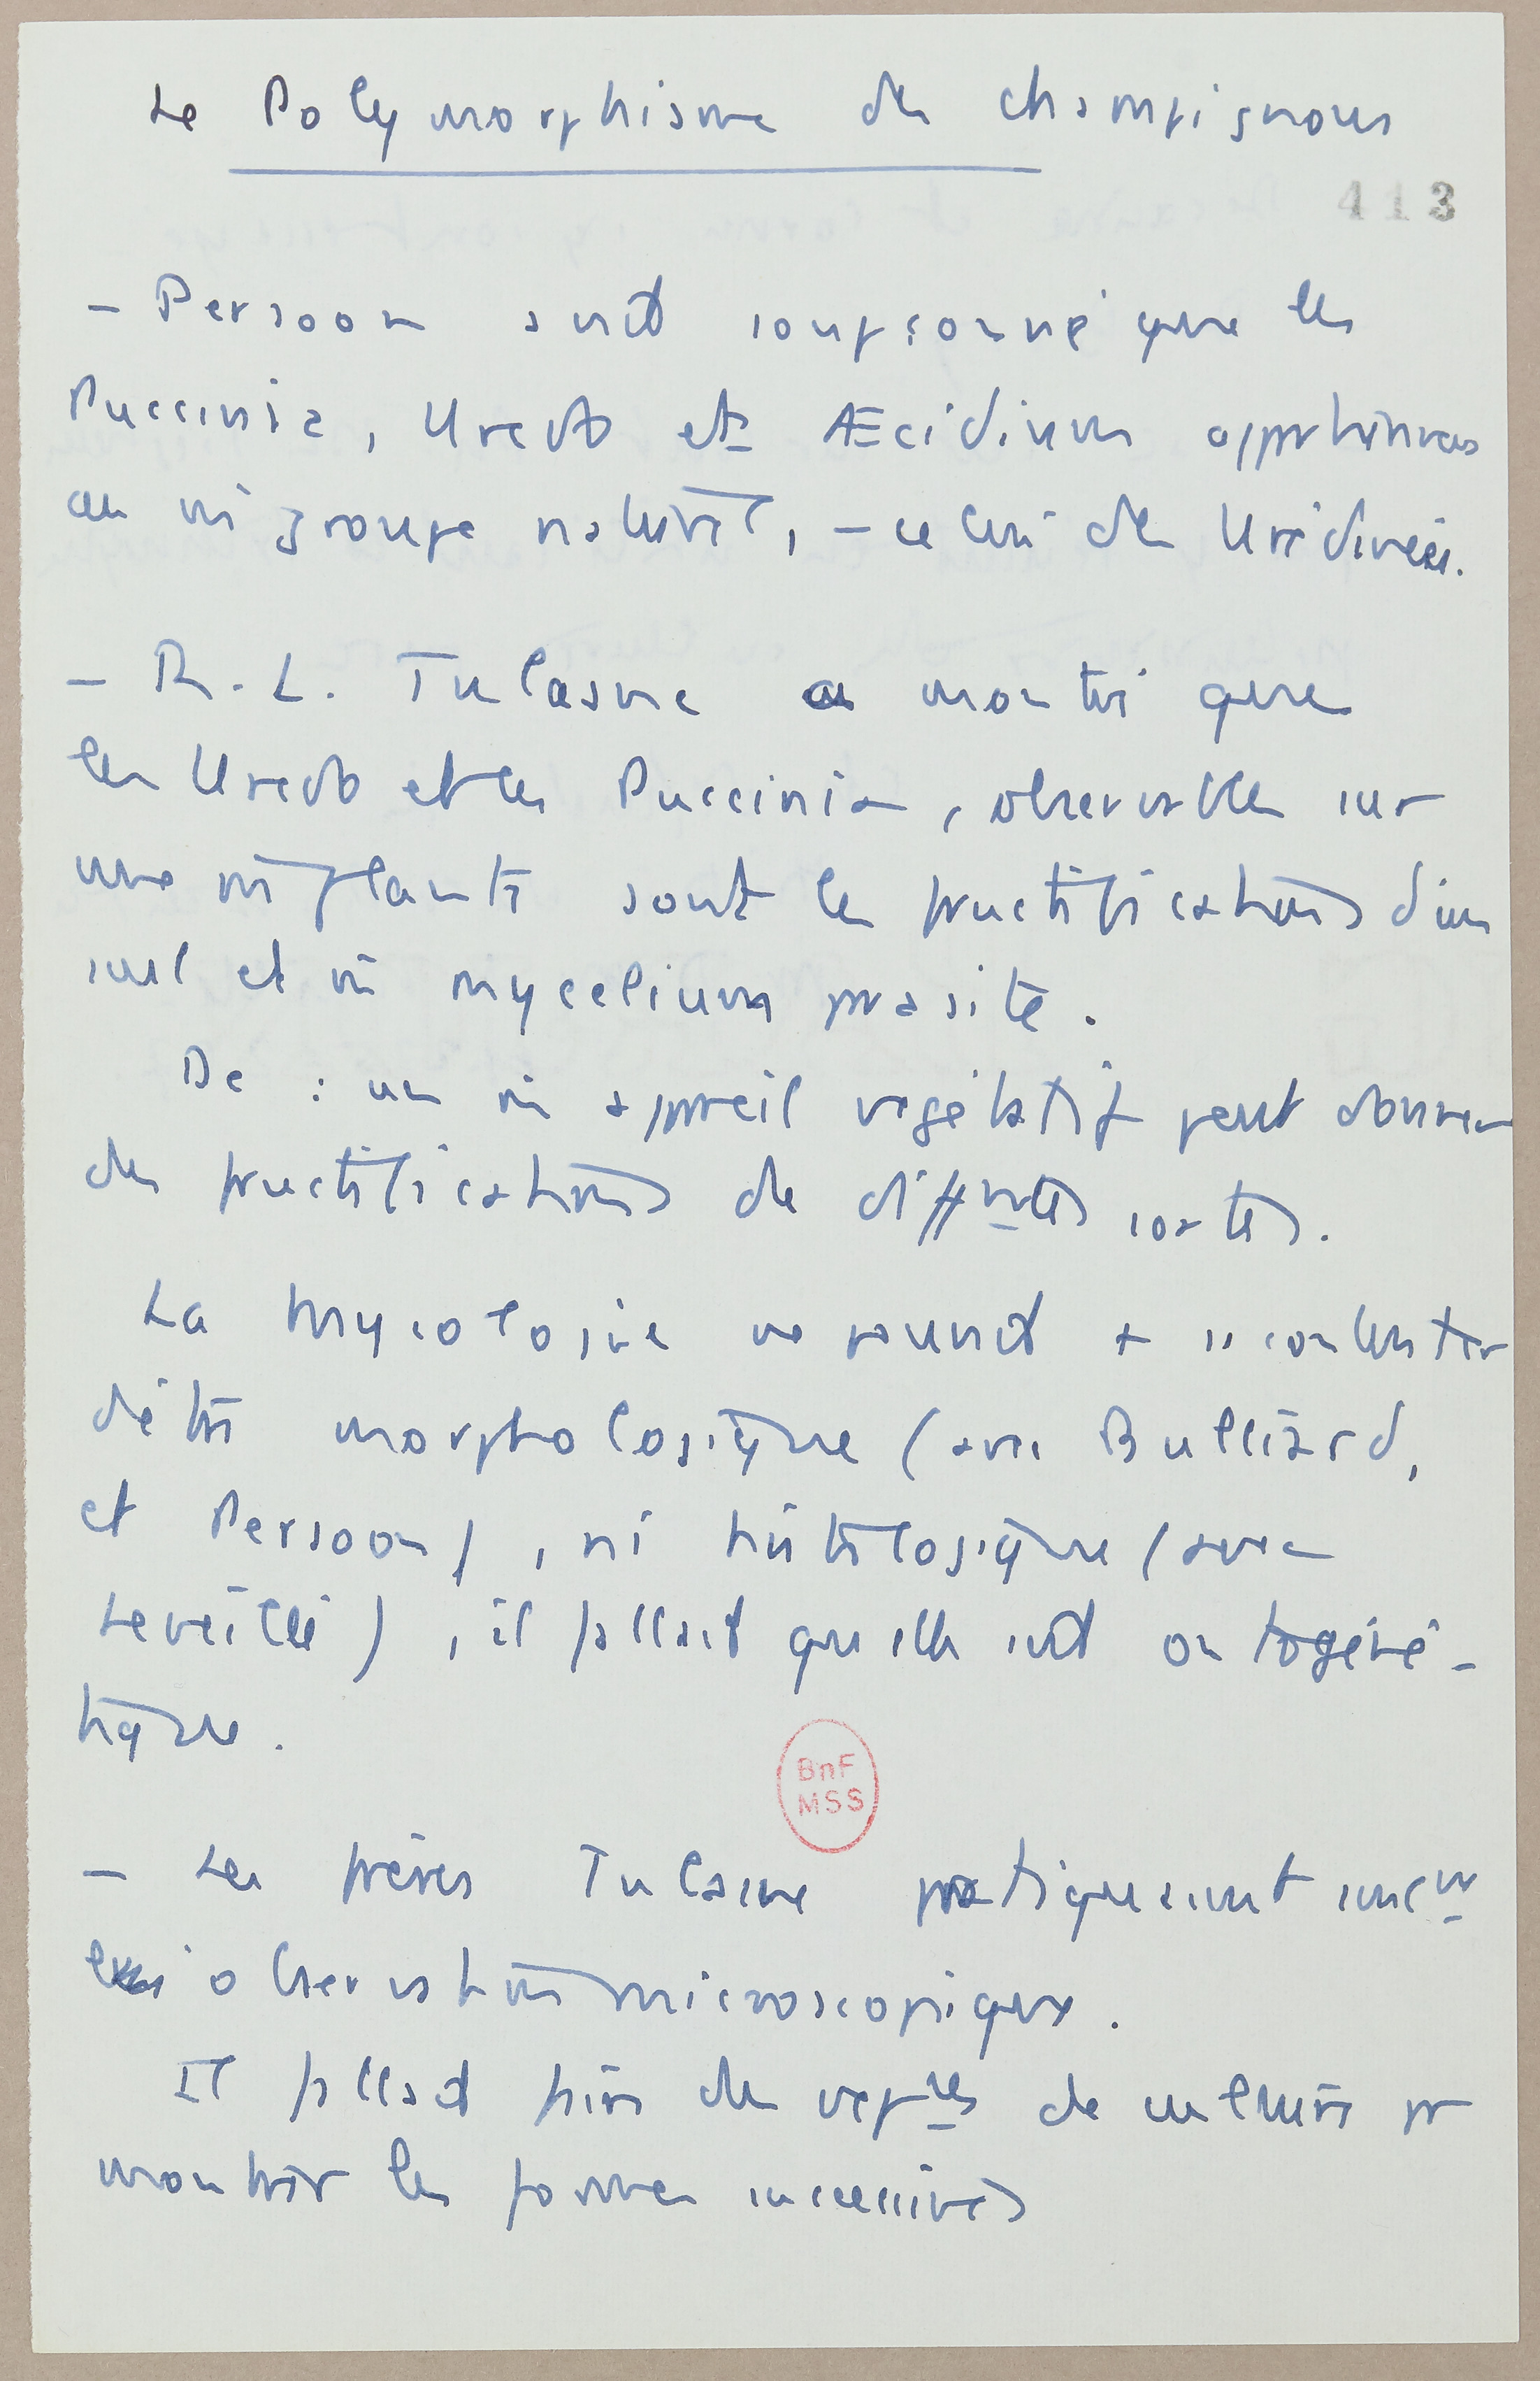 Le Polymorphisme des champignons
413
– Persoon avait soupçonné que les
Puccinia, Uredo etc Æcidium appartiennent
au m̂ groupe naturel, – celui des Urédinées.
– R. L. Tulasne a montré que
les Uredo et les Puccinia, observables sur
une m̂ plante sont les fructifications d'un
seul et m̂ mycelium parasite.
De : un m̂ appareil végétatif peut donner
des fructifications de diffntes sortes.
La Mycologie ne pouvait + se contenter
d'être morphologique (avec Bulliard,
et Persoon), ni histologique (avec
Leveillé), il fallait qu'elle soit ontogéné-
tique.
BnF
MSS
– Les frères Tulasne pratiquaient
observation microscopique.
Il fallait faire des de culture pr
montrer les formes successives